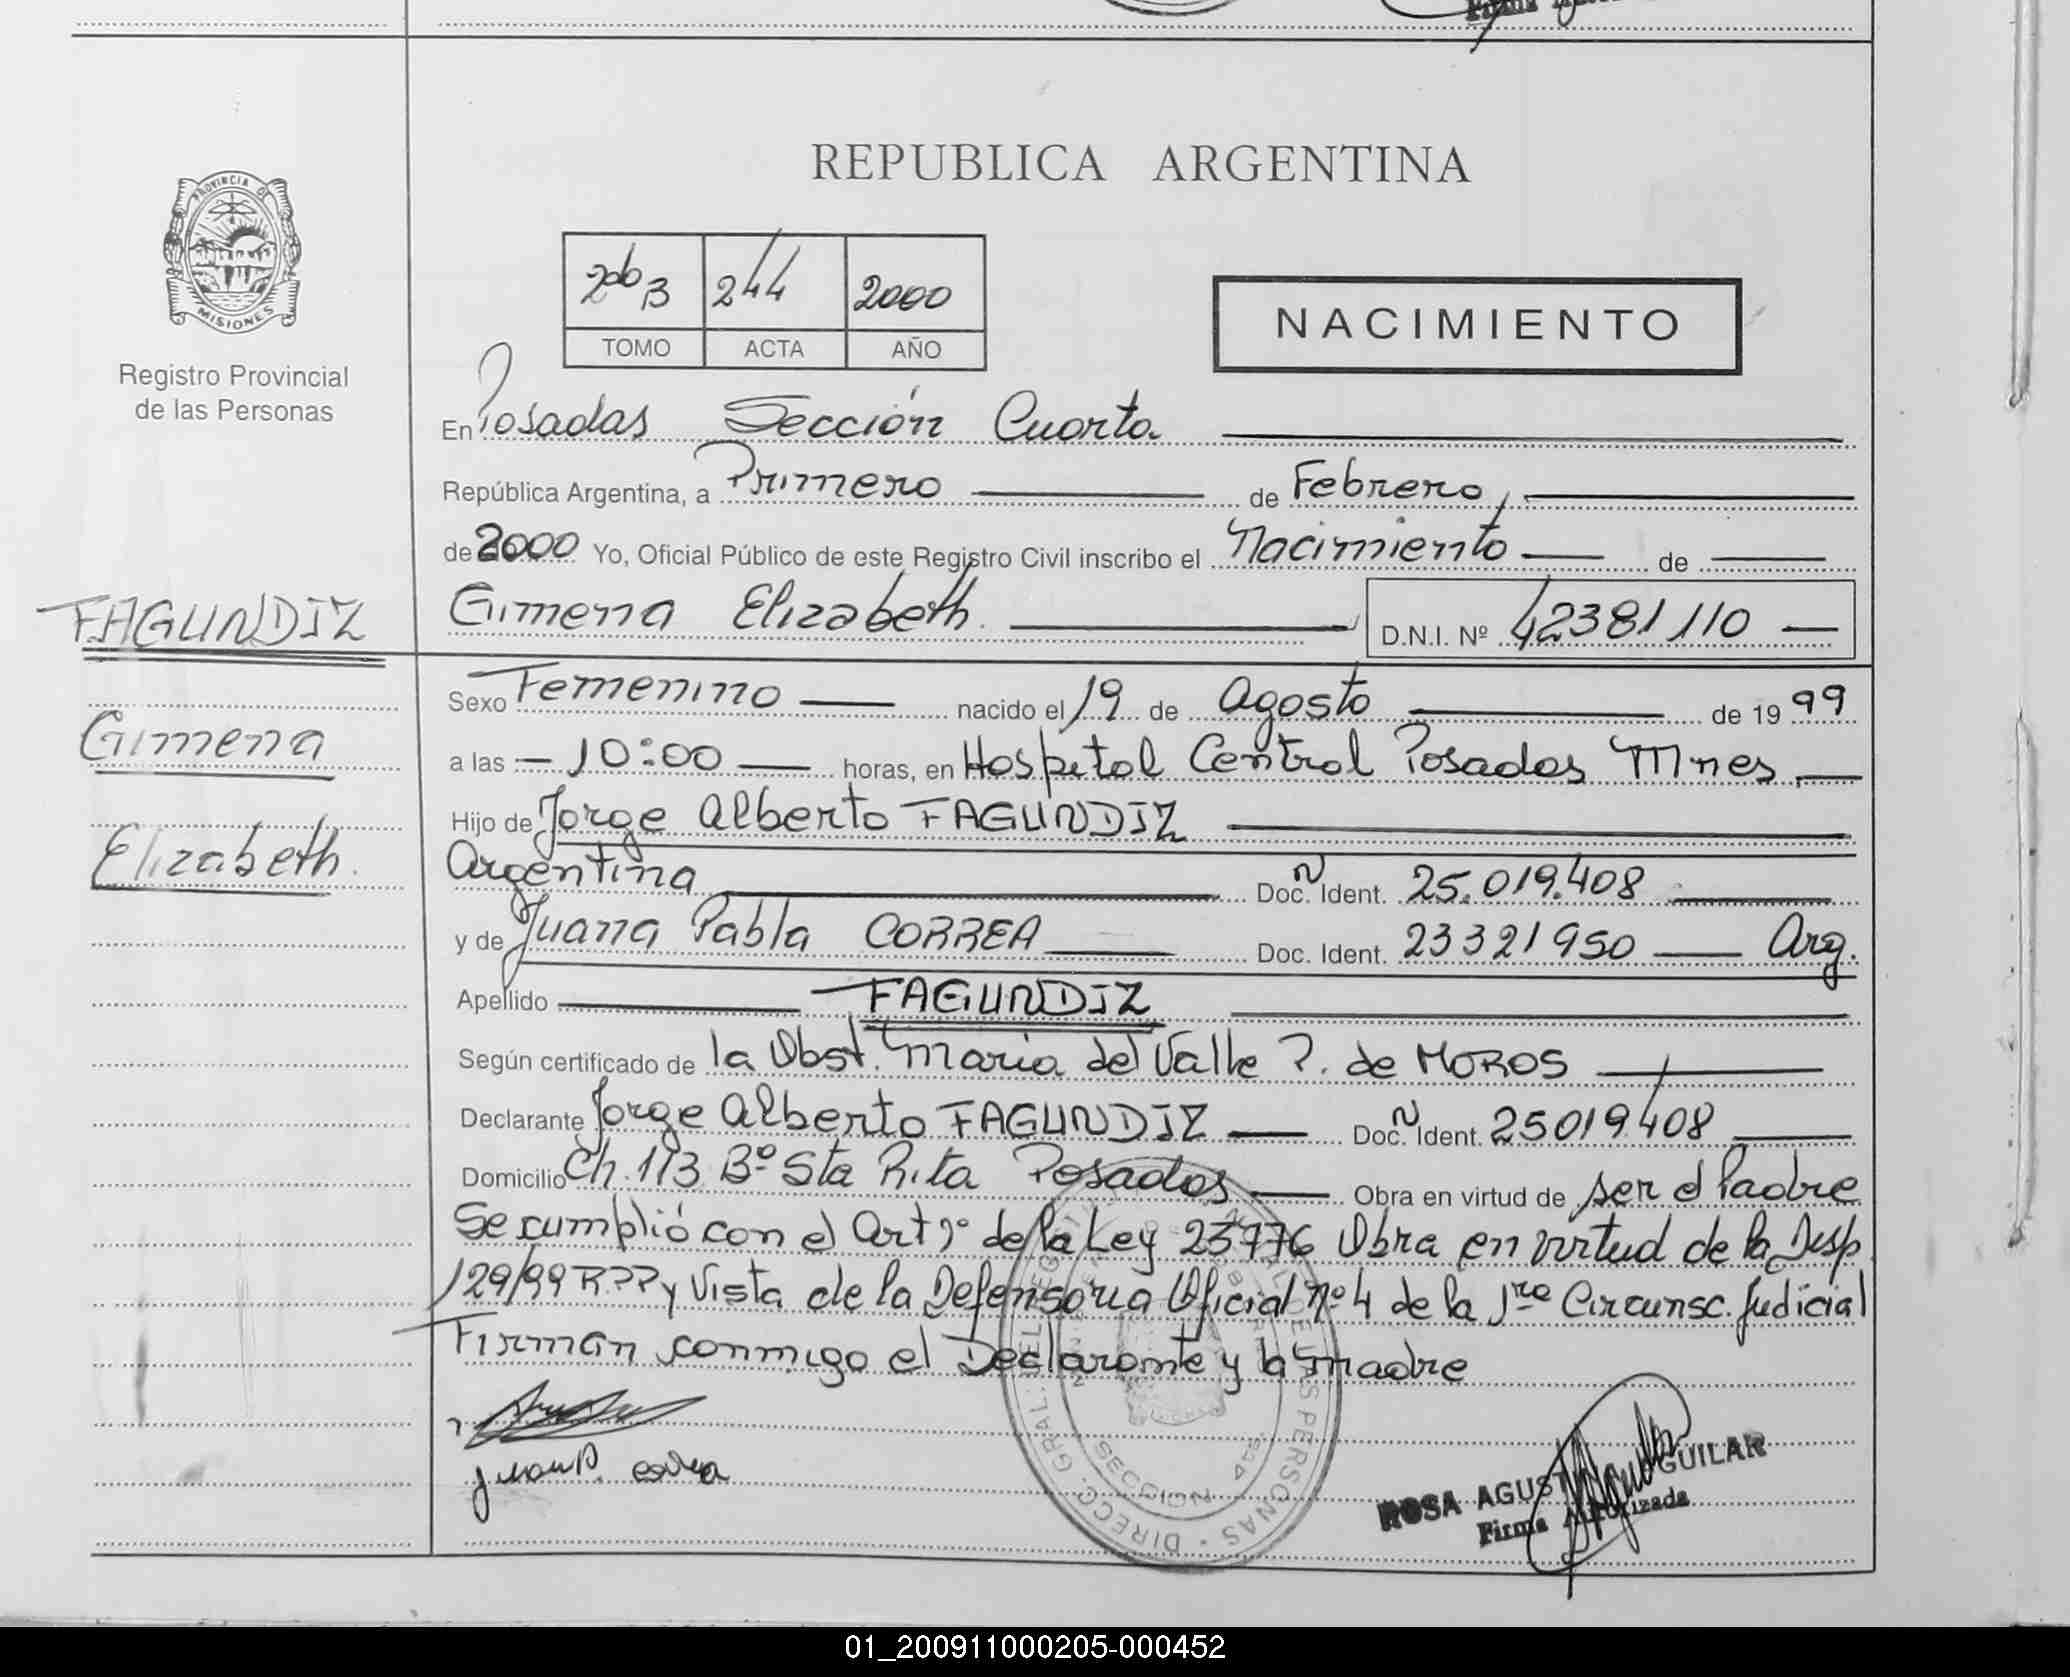 REPUBLICA ARGENTINA
PROVINCIA DE
MISIONES
Registro Provincial
de las Personas
244 2000
TOMO ACTA AÑO
NACIMIENTO
En Posadas Sección Cuarta
República Argentina, a Primero de Febrero,
de 2000 Yo, Oficial Público de este Registro Civil inscribo el Nacimiento de
FAGUNDIZ
Gimena Elizabeth. D.N.I. Nº 42381110
Sexo Femenino nacido el 19 de Agosto de 19 99
Gimena
a las 10:00 horas, en Hospital Central Posadas Mnes,
Hijo de Jorge Alberto FAGUNDIZ
Elizabeth.
Argentina Doc. Ident. 25.019.408
y de Juana Pabla CORREA Doc. Ident. 23321950 Arg.
Apellido FAGUNDIZ
Según certificado de la Obst. Maria del Valle P. de MOROS
Declarante Jorge Alberto FAGUNDIZ Doc. Ident. 25019408
Domicilio Ch. 113 Bº Sta Rita Posadas Obra en virtud de ser el Padre
Se cumplió con el Art de la Ley 23776 Obra en virtud de la Disp
129/99 R.P.P y Vista de la Defensoria Oficial nº 4 de la 1ra Circunsc. Judicial
Firman conmigo el Declarante y la Madre
Juana P. correa
ROSA AGUSTINA AGUILAR
Firma Autorizada
DIRECC. GRAL. DEL REGISTRO DE LAS PERSONAS
SECCION 4ta.
01_200911000205-000452